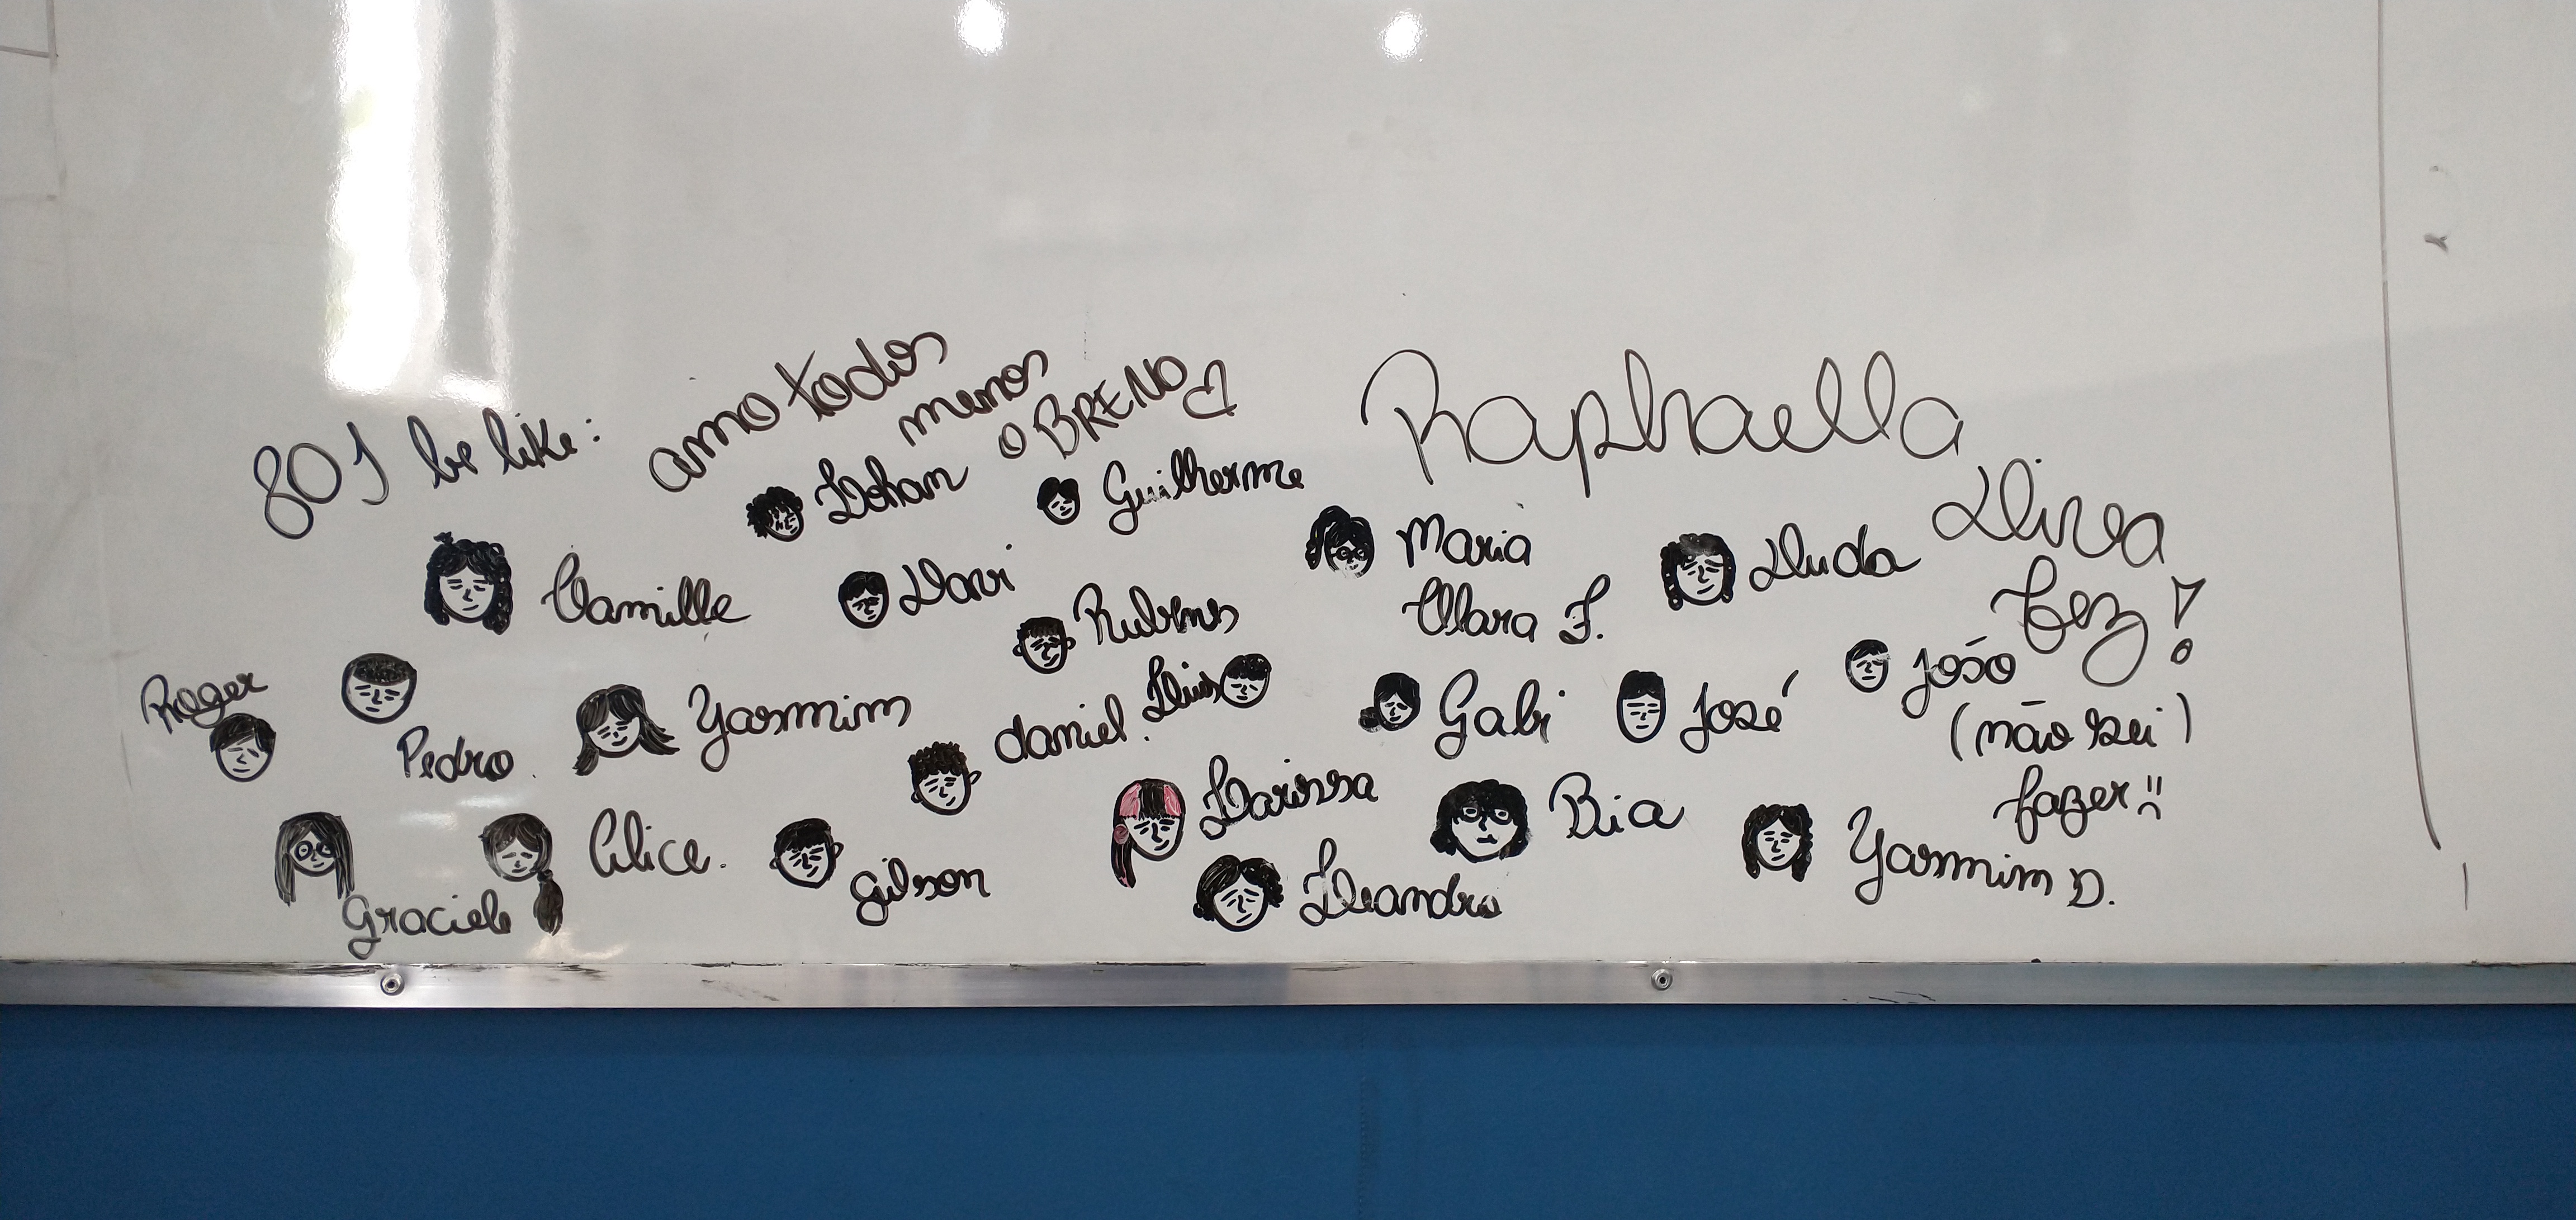 801 be like:
amo todos
menos
o BRENO
Raphaella
Diva
fez!
Lohan
Guilherme
Maria
Clara F.
Duda
Camille
Davi
Rubens
Roger
Pedro.
Yasmim
daniel.
Luis
Gabi
José
João
(não sei)
fazer
Graciele
Alice.
Gilson
Larissa
Leandro
Bia
Yasmim D.